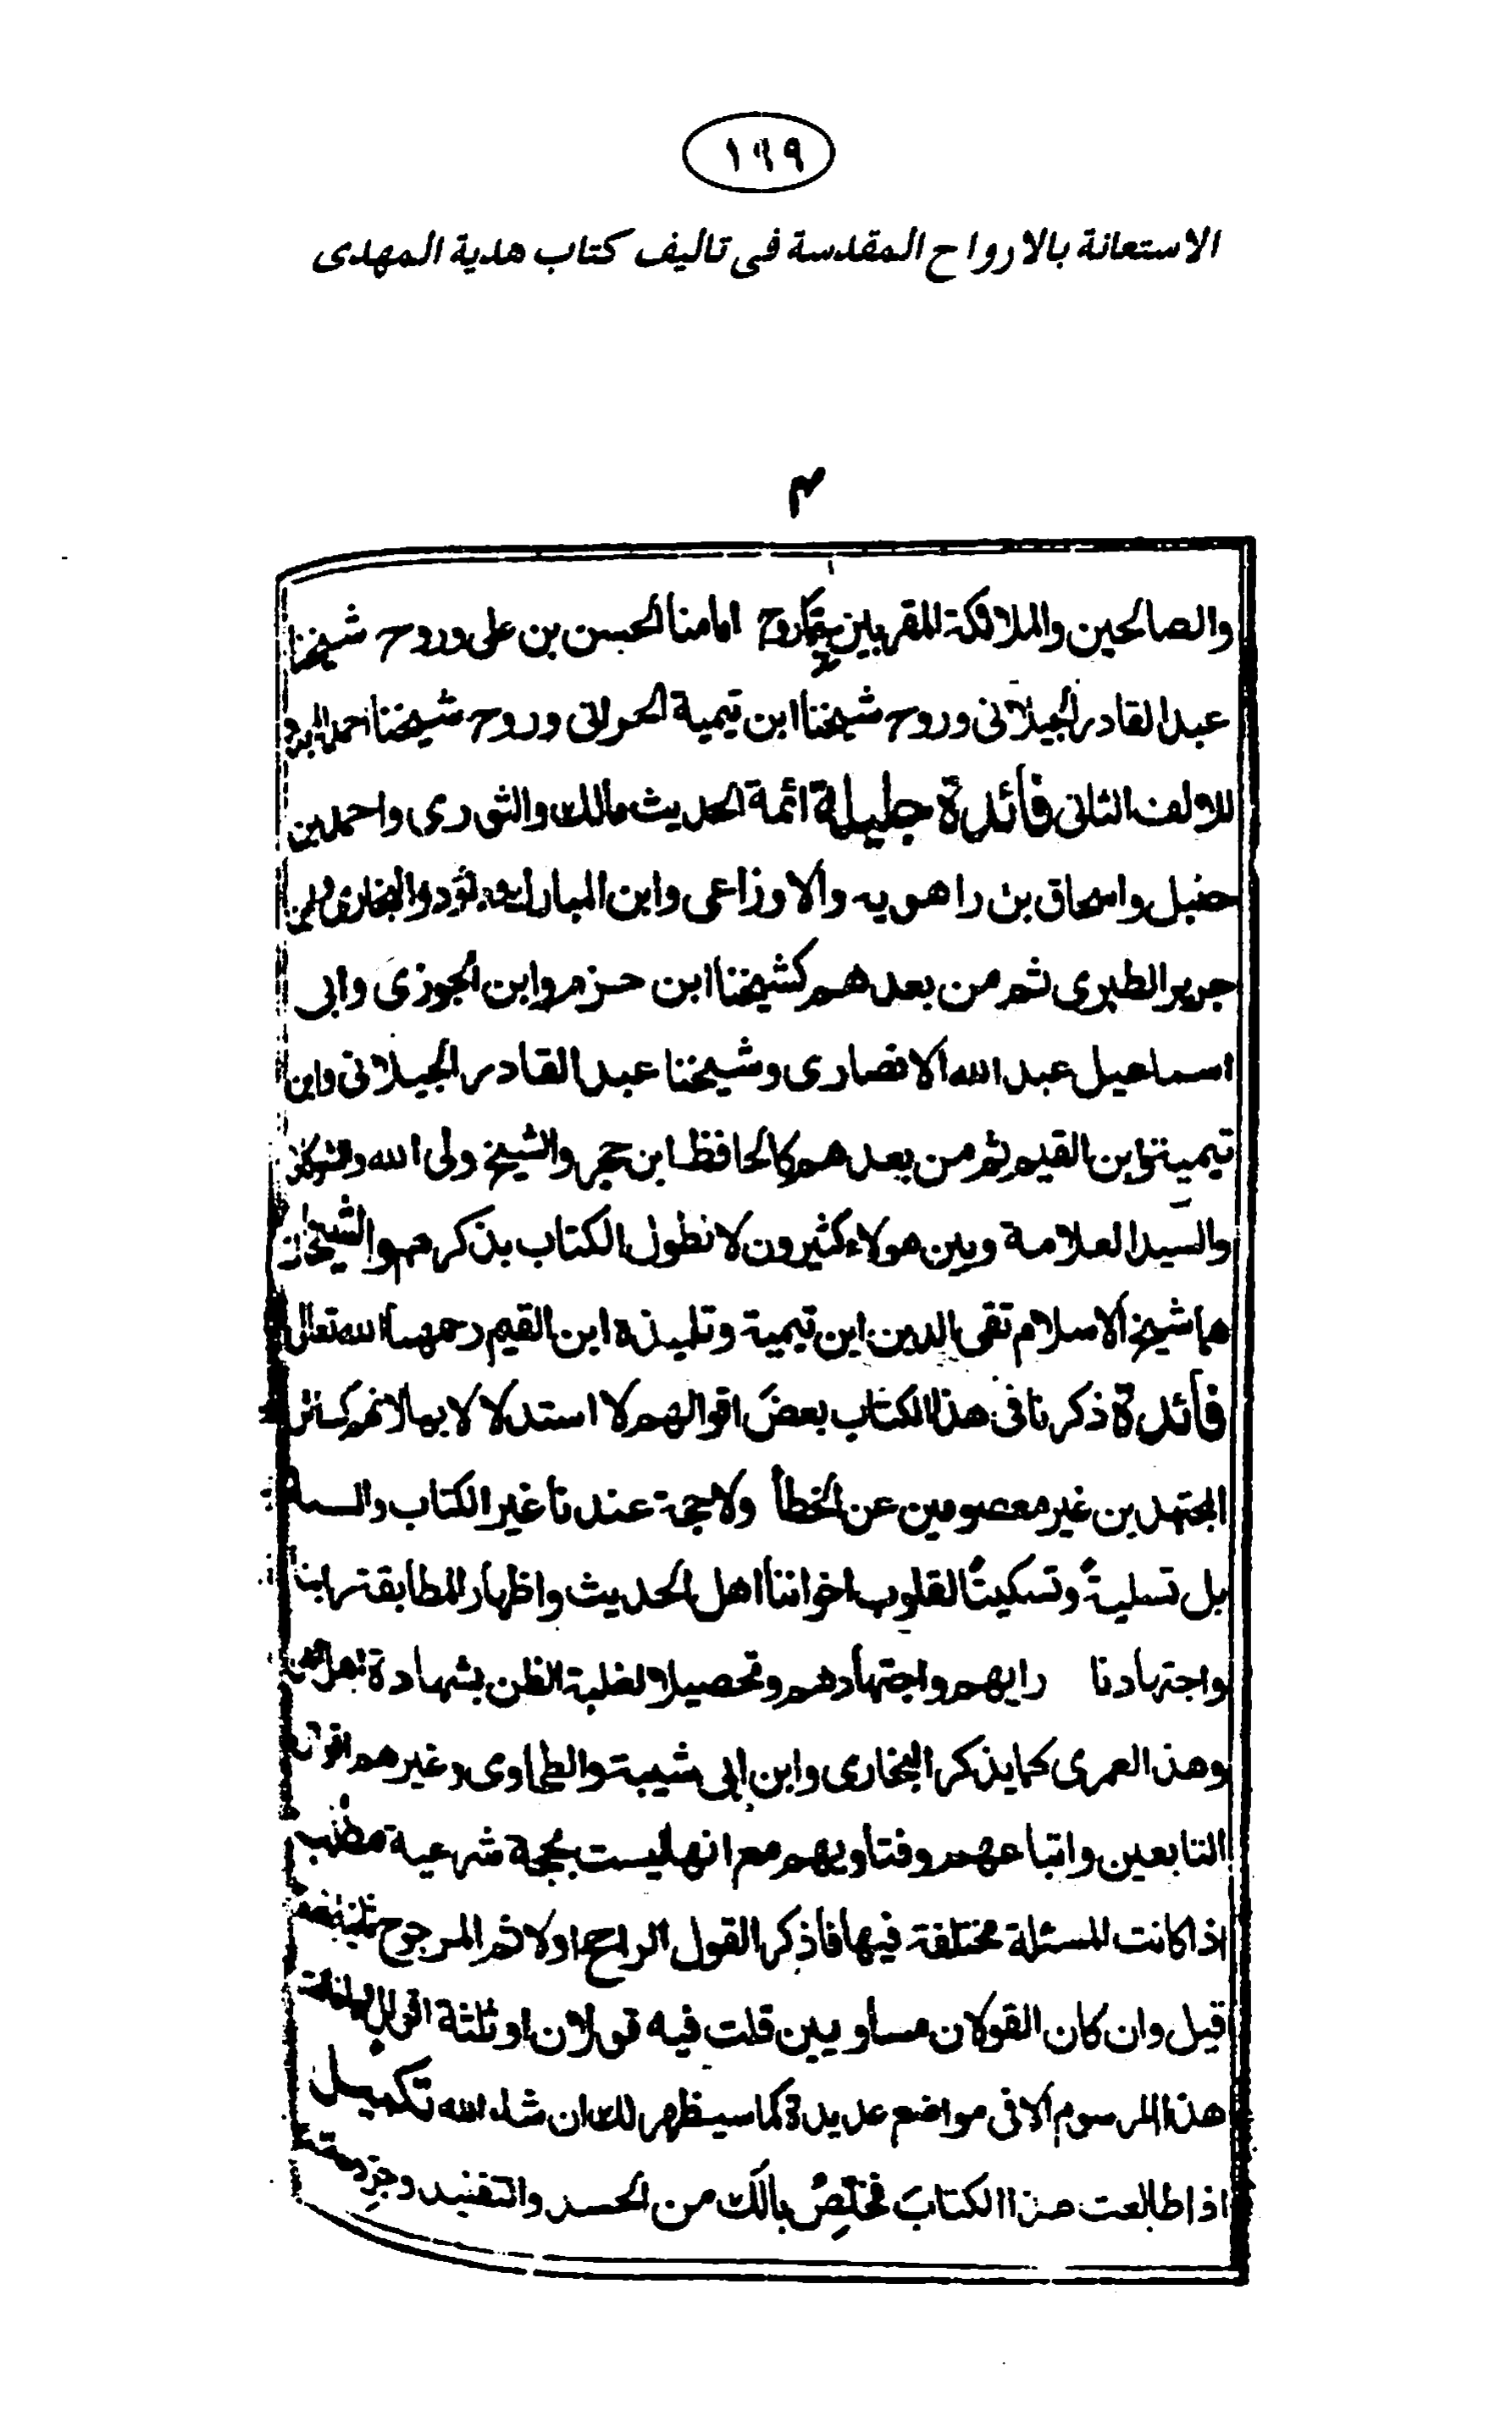 ١٦٩
الاستعانة بالارواح المقدسة فى تاليف كتاب هدية المهدى
٤
والصالحين والملائكة المقربين سيما روح امامنا الحسن بن على وروح شيخنا
عبد القادر الجيلانى وروح شيخنا ابن تيمية الحرانى وروح شيخنا احمد المجدد
للالف الثانى فائدة جليلة ائمة الحديث مالك والثورى واحمد بن
حنبل واسحاق بن راهويه والاوزاعى وابن المبارك والبخارى وابن
جرير الطبرى ثم من بعدهم كشيخنا ابن حزم وابن الجوزى وابى
اسماعيل عبد الله الانصارى وشيخنا عبد القادر الجيلانى وابن
تيمية وابن القيم ثم من بعدهم كالحافظ ابن حجر والشيخ ولى الله والشوكانى
والسيد العلامة وبين هولاء كثيرون لا نطول الكتاب بذكرهم والشيخان
هما شيخ الاسلام تقى الدين ابن تيمية وتلميذه ابن القيم رحمهما الله تعالى
فائدة ذكرنا فى هذا الكتاب بعض اقوالهم لا استدلالا بها لانهم كسائر
المجتهدين غير معصومين عن الخطأ ولا حجة عندنا غير الكتاب والسنة
بل تسلية وتسكيتا لقلوب اخواننا اهل الحديث واظهار المطابقة راينا
واجتهادنا رايهم واجتهادهم وتحصيلا لغلبة الظن بشهادة
وهذا لعمرى كما يذكر البخارى وابن ابى شيبة والطحاوى وغيرهم اقوال
التابعين واتباعهم وفتاويهم مع انها ليست بحجة شرعية مطلب
اذا كانت المسئلة مختلفة فيها فاذكر القول الراجح اولا ثم المرجوح
قيل وان كان القولان مساويين قلت فيه قولان او ثلثة اقوال
هذا المرسوم الا فى مواضع عديدة كما سيظهر لك ان شاء الله تكميل
اذا طالعت هذا الكتاب فخلص بالك من الحسد والتفنيد وجرد